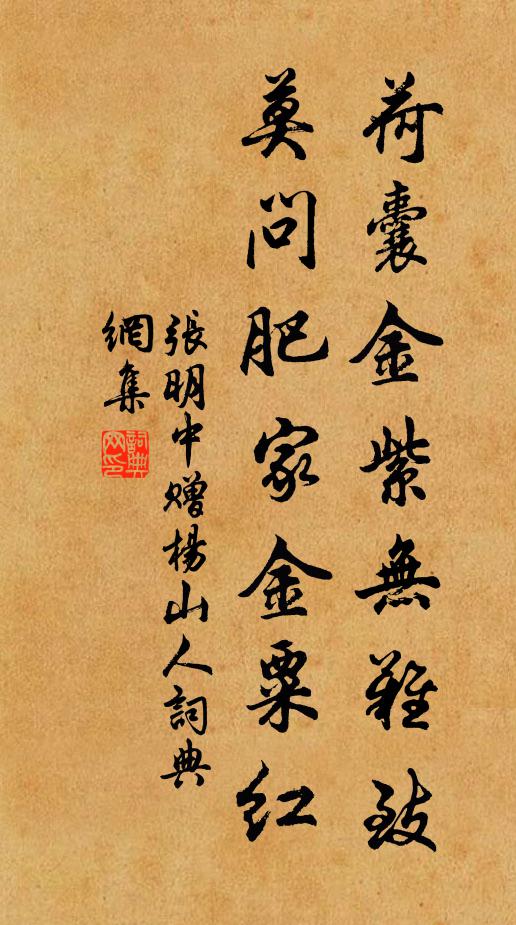 荷囊金紫無難致
莫問肥家金粟紅
張明中贈楊山人詞典
網集
詞典
网印